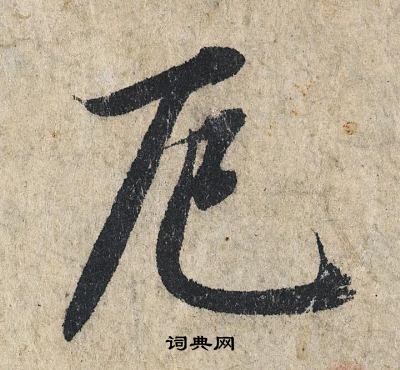 厄
词典网